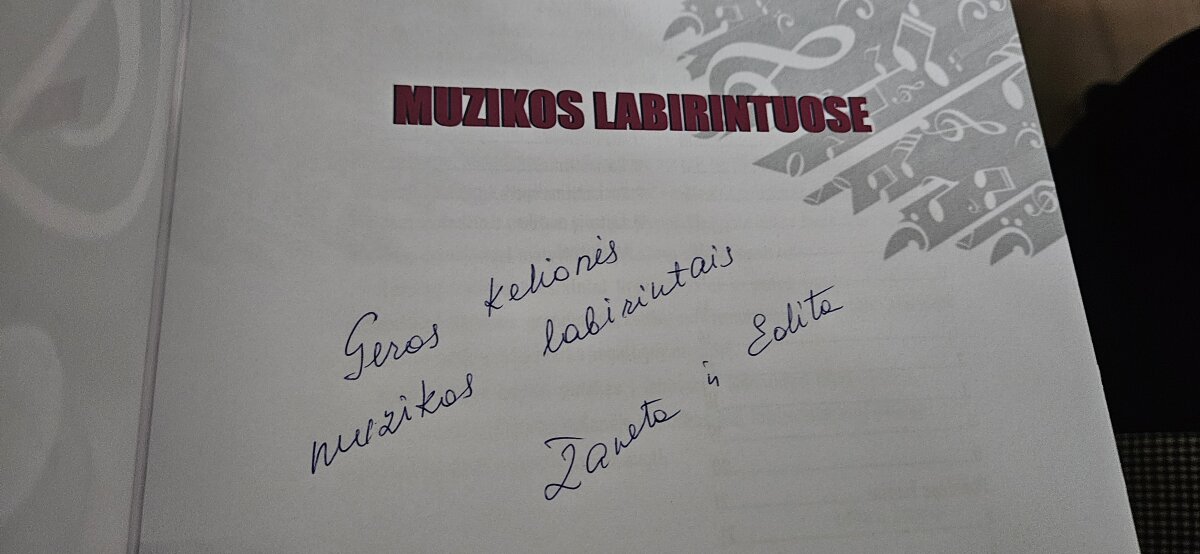 MUZIKOS LABIRINTUOSE
Geros kelionės
muzikos labirintais
Žaneta ir Edita